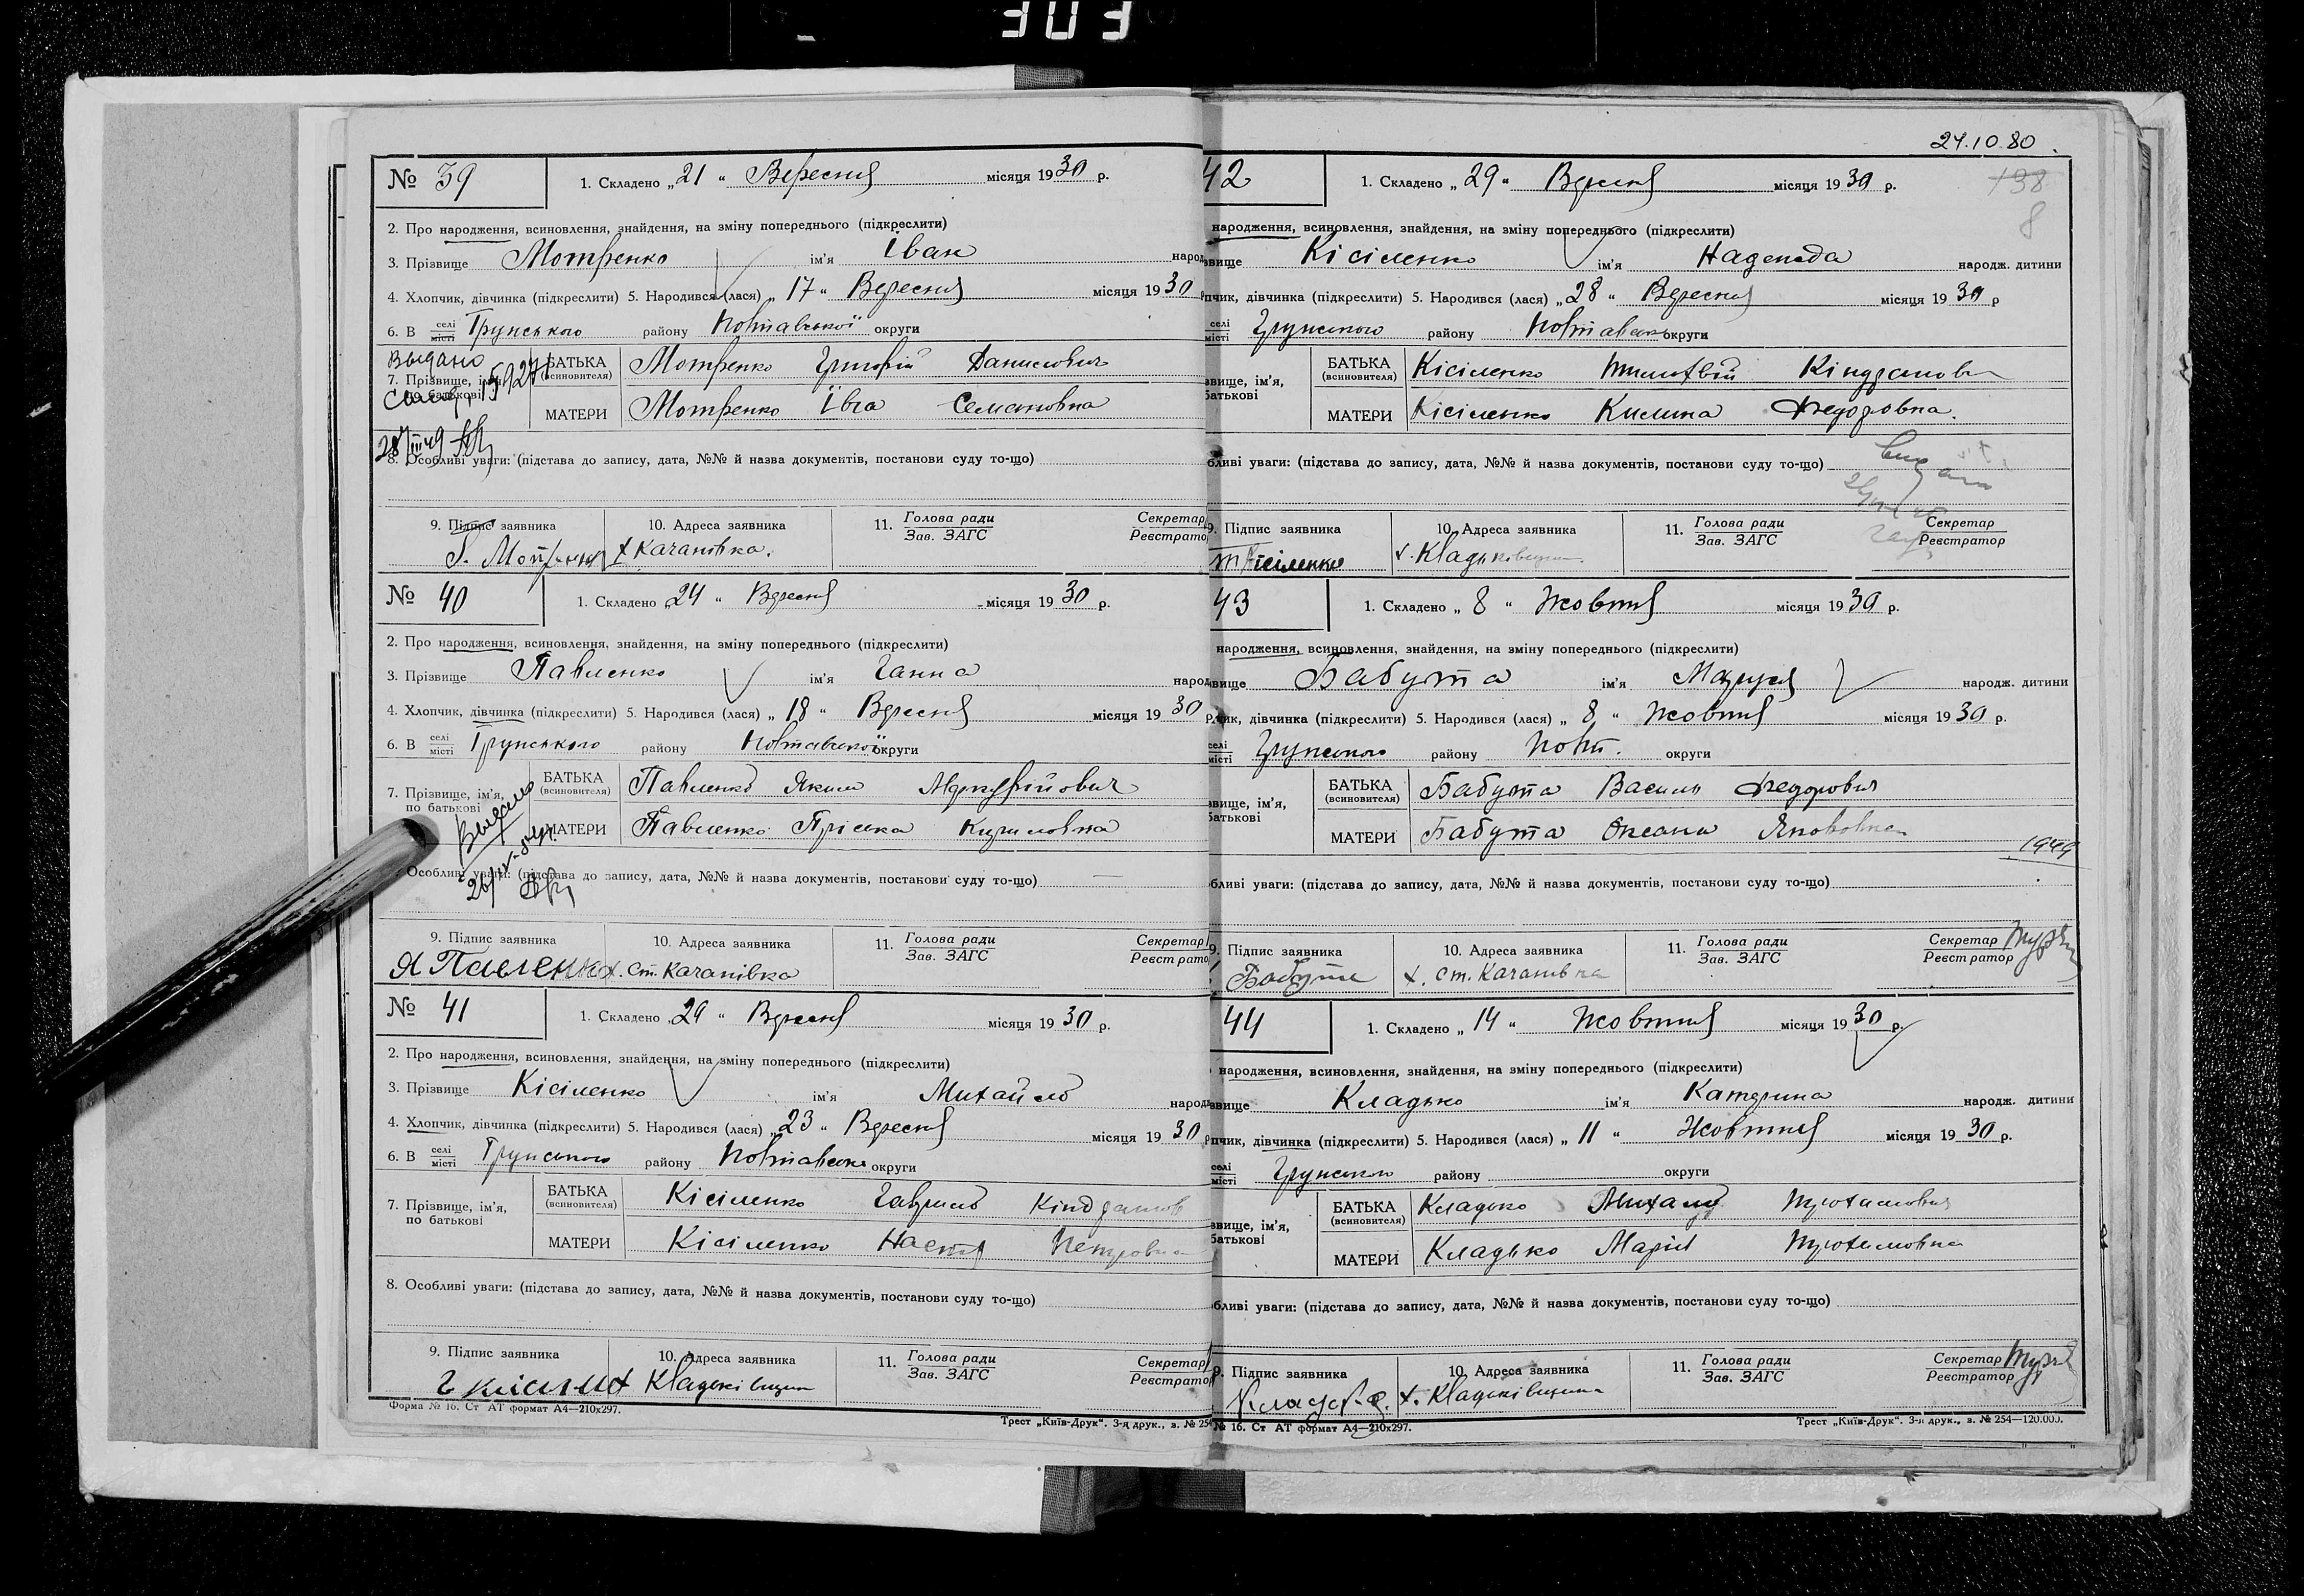 № 39
1. Складено „21“ Вересня місяця 1930 р.
2. Про народження, всиновлення, знайдення, на зміну попереднього (підкреслити)
3. Прізвище Мотренко ім’я Іван народ
4. Хлопчик, дівчинка (підкреслити) 5. Народився (лася) „17“ Вересня місяця 1930
6. В селі місті Грунського району Полтавської округи
Выдано
7. Прізвище, ім’я, по батькові
БАТЬКА (всиновителя) Мотренко Григорій Данилович
МАТЕРИ Мотренко Івга Семановна
8. Особливі уваги: (підстава до запису, дата, №№ й назва документів, постанови суду то-що)
9. Підпис заявника 10. Адреса заявника 11. Голова ради Зав. ЗАГС Секретар Реєстратор
х Качановка.
№ 40
1. Складено „24“ Вересня місяця 1930 р.
2. Про народження, всиновлення, знайдення, на зміну попереднього (підкреслити)
3. Прізвище Павленко ім’я Ганна народ
4. Хлопчик, дівчинка (підкреслити) 5. Народився (лася) „18“ Вересня місяця 1930 р.
6. В селі місті Грунського району Полтавської округи
7. Прізвище, ім’я, по батькові
БАТЬКА (всиновителя) Павленко Яким Меркурійович
МАТЕРИ Павленко Пріська Кириловна
Выдано
Особливі уваги: (підстава до запису, дата, №№ й назва документів, постанови суду то-що)
9. Підпис заявника 10. Адреса заявника 11. Голова ради Зав. ЗАГС Секретар Реєстратор
Я Павленко х. Ст. Качанівка
№ 41
1. Складено „29“ Вересня місяця 1930 р.
2. Про народження, всиновлення, знайдення, на зміну попереднього (підкреслити)
3. Прізвище Кісіленко ім’я Михайло народ
4. Хлопчик, дівчинка (підкреслити) 5. Народився (лася) „23“ Вересня місяця 1930 р
6. В селі місті Грунського району Полтавськ округи
7. Прізвище, ім’я, по батькові
БАТЬКА (всиновителя) Кісіленко Гаврило Кіндратов
МАТЕРИ Кісіленко Настя Петровна
8. Особливі уваги: (підстава до запису, дата, №№ й назва документів, постанови суду то-що)
9. Підпис заявника 10. Адреса заявника 11. Голова ради Зав. ЗАГС Секретар Реєстратор
х Кладьківщин
Форма № 16. Ст АТ формат А4—210х297.
Трест „Київ-Друк“. 3-я друк., з. № 254
24.10.80.
138
8
42
1. Складено „29“ Вересня місяця 1930 р.
народження, всиновлення, знайдення, на зміну попереднього (підкреслити)
звище Кісіленко ім’я Надежда народж. дитини
пчик, дівчинка (підкреслити) 5. Народився (лася) „28“ Вересня місяця 1930 р
селі місті Грунського району Полтавськ округи
звище, ім’я, батькові
БАТЬКА (всиновителя) Кісіленко Тимохвій Кіндратови
МАТЕРИ Кісіленко Килина Федоровна.
бливі уваги: (підстава до запису, дата, №№ й назва документів, постанови суду то-що)
9. Підпис заявника 10. Адреса заявника 11. Голова ради Зав. ЗАГС Секретар Реєстратор
Т Кісіленко х. Кладьковщин
43
1. Складено „8“ Жовтня місяця 1930 р.
народження, всиновлення, знайдення, на зміну попереднього (підкреслити)
звище Бабута ім’я Маруся народж. дитини
чик, дівчинка (підкреслити) 5. Народився (лася) „8“ Жовтня місяця 1930 р.
селі місті Грунського району Полт. округи
звище, ім’я, батькові
БАТЬКА (всиновителя) Бабута Василь Федорович
МАТЕРИ Бабута Оксана Якововна
1949
бливі уваги: (підстава до запису, дата, №№ й назва документів, постанови суду то-що)
9. Підпис заявника 10. Адреса заявника 11. Голова ради Зав. ЗАГС Секретар Реєстратор
Бабута х. Ст. Качанівка
44
1. Складено „14“ Жовтня місяця 1930 р.
народження, всиновлення, знайдення, на зміну попереднього (підкреслити)
звище Кладько ім’я Катерина народж. дитини
пчик, дівчинка (підкреслити) 5. Народився (лася) „11“ Жовтня місяця 1930 р.
селі місті Грунського району округи
звище, ім’я, батькові
БАТЬКА (всиновителя) Кладько Михайло Трохимович
МАТЕРИ Кладько Марія Трохимовна
бливі уваги: (підстава до запису, дата, №№ й назва документів, постанови суду то-що)
9. Підпис заявника 10. Адреса заявника 11. Голова ради Зав. ЗАГС Секретар Реєстратор
х. Кладьківщина
№ 16. Ст АТ формат А4—210х297.
Трест „Київ-Друк“. 3-я друк., з. № 254—120.000.